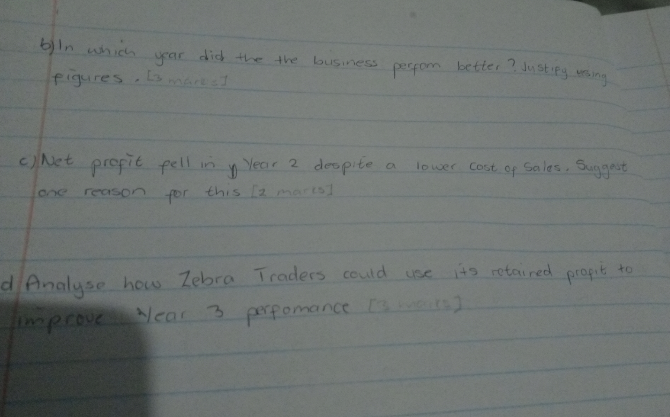 b) In which year did the the business perfom better? Justify using
figures. [3 marks]
c) Net profit fell in y Year 2 despite a lower cost of sales. Suggest
one reason for this [2 marks]
d Analyse how Zebra Traders could use its retained profit to
improve Year 3 perfomance [3 marks]